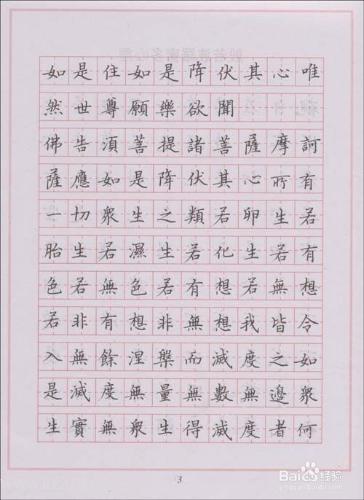 如是住如是降伏其心唯
然世尊願樂欲聞
佛告須菩提諸菩薩摩訶
薩應如是降伏其心所有
一切眾生之類若卵生若
胎生若濕生若化生若有
色若無色若有想若無想
若非有想非無想我皆令
入無餘涅槃而滅度之如
是滅度無量無數無邊眾
生實無眾生得滅度者何
3
Baidu经验
jingyan.baidu.com